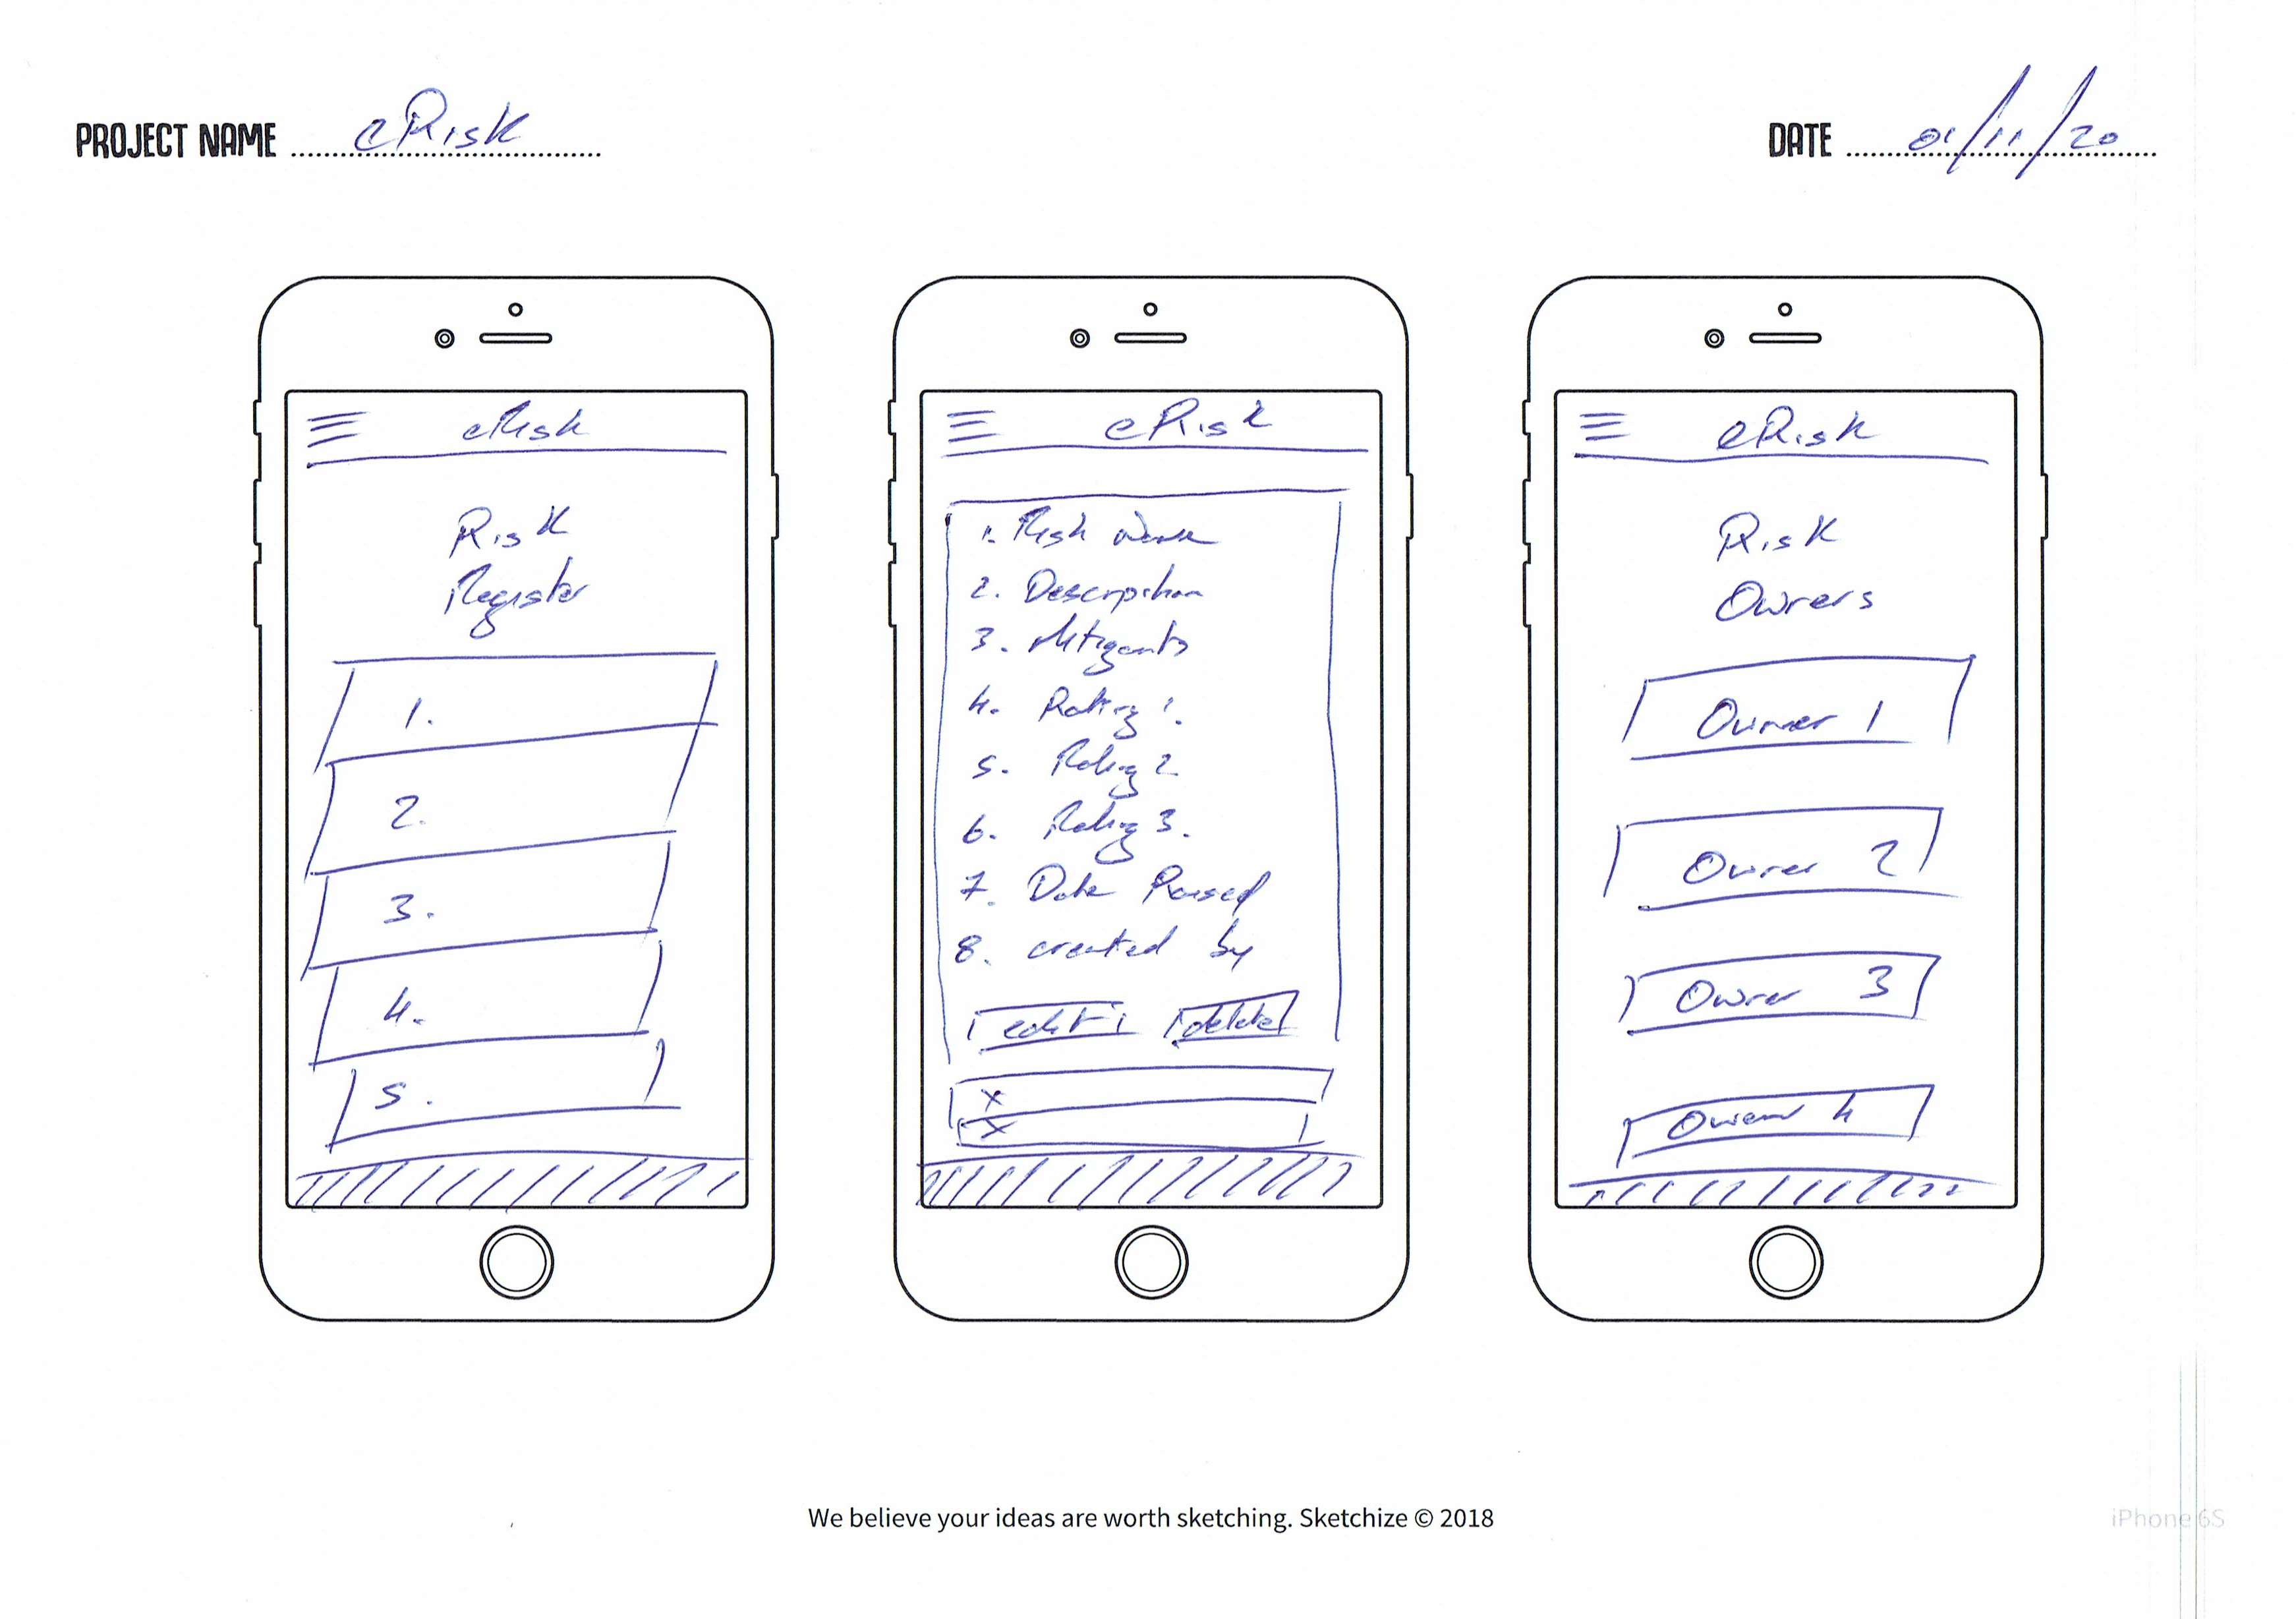 PROJECT NAME eRisk
DATE 01/11/20
eRisk
Risk
Register
1.
2.
3.
4.
5.
eRisk
1. Risk Name
2. Description
3. Mitigants
4. Rating 1.
5. Rating 2
6. Rating 3.
7. Date Raised
8. created by
edit delete
x
x
eRisk
Risk
Owners
Owner 1
Owner 2
Owner 3
Owner 4
We believe your ideas are worth sketching. Sketchize © 2018
iPhone 6S